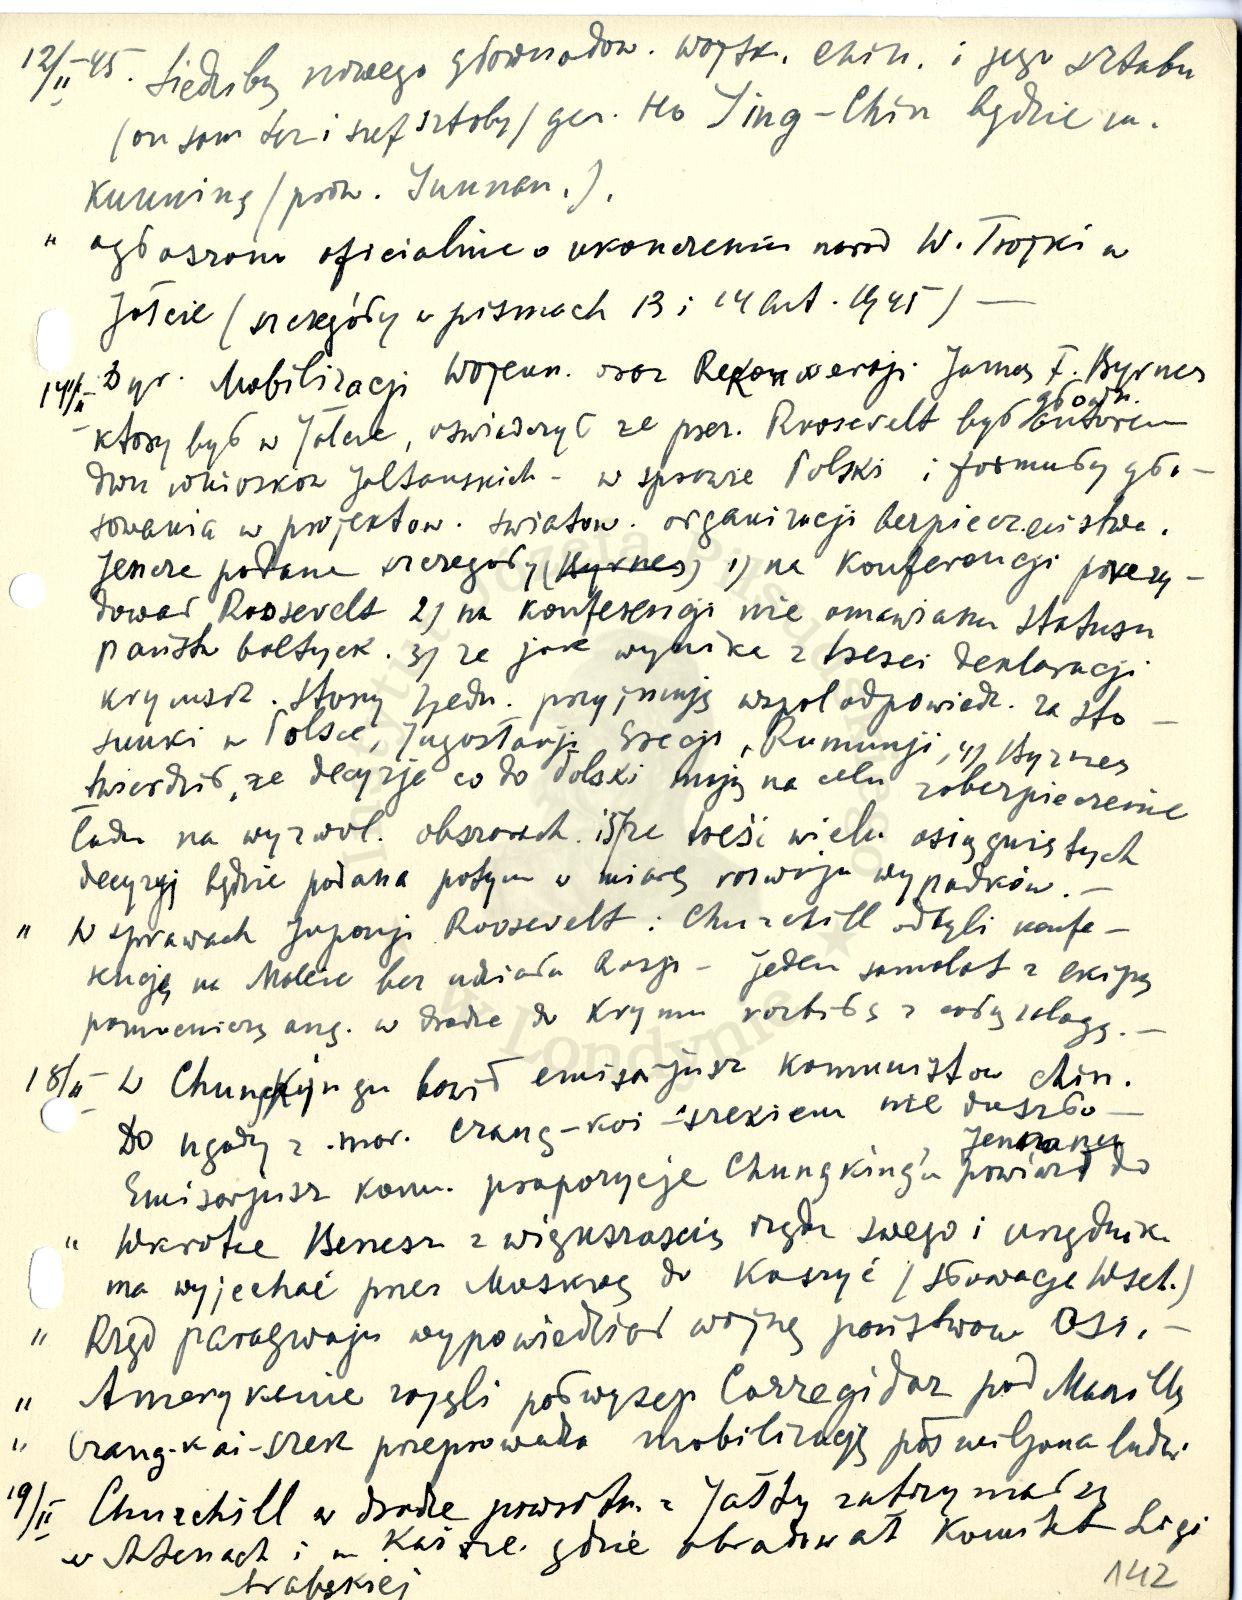 12/II-45. Siedzibą nowego głównodow. wojsk. chin. i jego sztabu
(on sam też i szef sztabu) gen. Ho Ying-Chin będzie m.
Kunming (prow. Junnan.).
" ogłoszono oficialnie o ukonczeniu narad W. Trojki w
Jałcie (szczegóły w pismach 13 i 14 lut. 1945) —
14/II- Dyr. Mobilizacji Wojenn. oraz Rekonwersji James F. Byrnes
który był w Jałcie, oświadczył że prez. Roosevelt był główn. autorem
dwu wniosków Jałtańskich - w sprawie Polski i formuły gło-
sowania w projektow. światow. organizacji bezpieczeństwa.
Jeszcze podane szczegóły (Byrnes) 1) na Konferencji prezy-
dował Roosevelt 2) na konferencji nie omawiano statusu
państw bałtyck. 3) że jak wynika z treści deklaracji
krymsk. Stany Zjedn. przyjmują współodpowiedz. za sto-
sunki w Polsce, Jugosławji, Grecji, Rumunji, 4) Byrnes
twierdził, że decyzje co do Polski mają na celu zabezpieczenie
ładu na wyzwol. obszarach. 5) że treść wielu osiągniętych
decyzyj będzie podana potym w miarę rozwoju wypadków. —
" W sprawach Japonji Roosevelt i Churchill odbyli konfe-
rencję na Malcie bez udziału Rosji - jeden samolot z ekipą
pomocniczą ang. w drodze do Krymu rozbił się z całą załogą. —
18/II- W Chungkingu bawił emisarjusz komunistów chin.
Do ugody z mar. Czang-kai-szekiem nie doszło —
Emisarjusz kom. propozycje Chungking'u powiózł do Jenanu
" Wkrótce Benesz z większością rządu swego i urzędnik.
ma wyjechać przez Moskwę do Koszyć (Słowacja Wsch.)
" Rząd Paragwaju wypowiedział wojnę państwom Osi. —
" Amerykanie zajęli półwysep Corregidor pod Manillą
" Czang-kai-szek przeprowadza mobilizację pół miljona ludzi
19/II Churchill w drodze powrotn. z Jałty zatrzymał się
w Atenach i w Kairze. gdzie obradował Komitet Ligi
Arabskiej
142